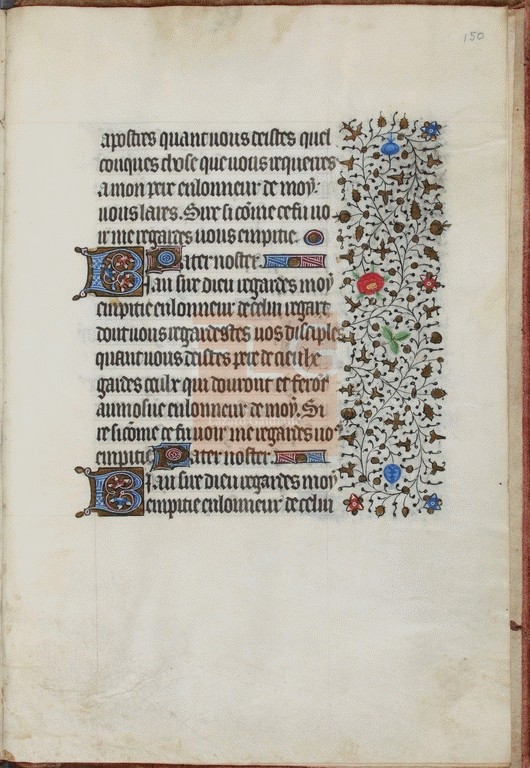 150
apostres quant uous deistes quel
conques chose que uous requerres
a mon pere en lonneur de moy:
uous laures. Sire si cõme ce fu uo
ir me regardes uous empitie.
Pater noster.
Biau sire dieu regardes moy
empitie en lonneur de celui regart
dont uous regardestes uos disciples
quant uous deistes pere de ciel he
gardes ceulx qui douront et feror
aumosne en lonneur de moy. Si
re si cõme ce fu uoir me regardes uo9
empitie Pater noster
Biau sire dieu regardes moy
empitie en lonneur de celui